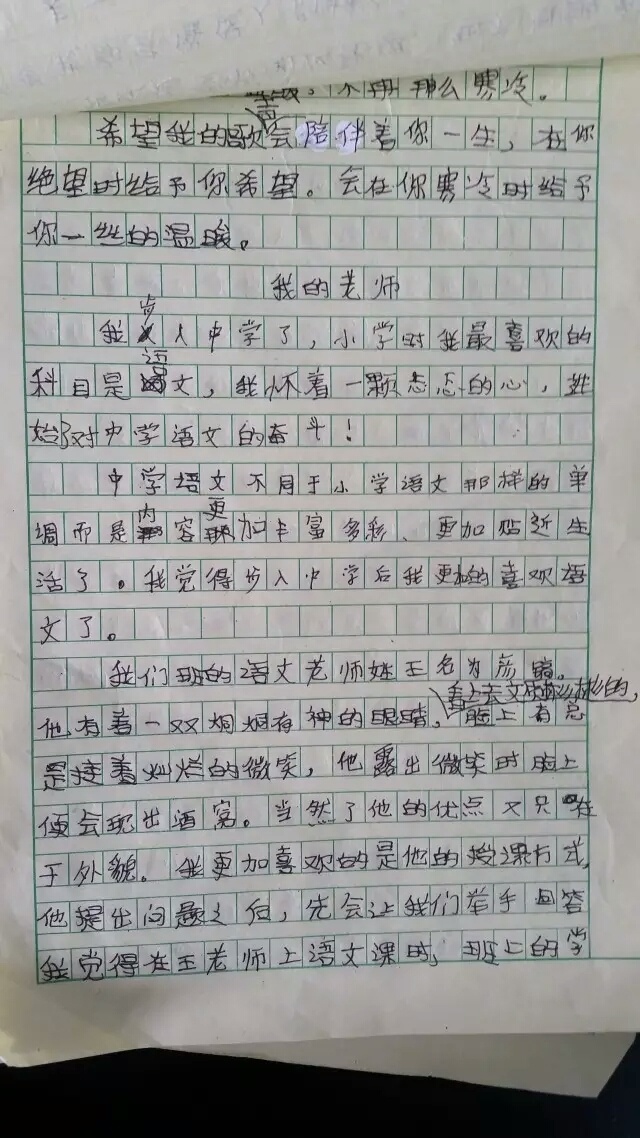 不再那么寒冷。
希望我的歌声会陪伴着你一生，在你
绝望时给予你希望。会在你寒冷时给予
你一丝的温暖。
我的老师
我步入中学了，小学时我最喜欢的
科目是语文，我怀着一颗忐忑的心，
始了对中学语文的奋斗！
中学语文不同于小学语文那样的单
调而是内容更加丰富多彩、更加贴近生
活了。我觉得步入中学后我更加的喜欢语
文了。
我们班的语文老师姓王名为彦
看上去文质彬彬的，
他有着一双炯炯有神的眼睛，脸上有总
是挂着灿烂的微笑，他露出微笑时脸上
便会现出酒窝。当然了他的优点又只在
于外貌。我更加喜欢的是他的授课方式，
他提出问题之后，先会让我们举手回答
我觉得在王老师上语文课时，班上的学